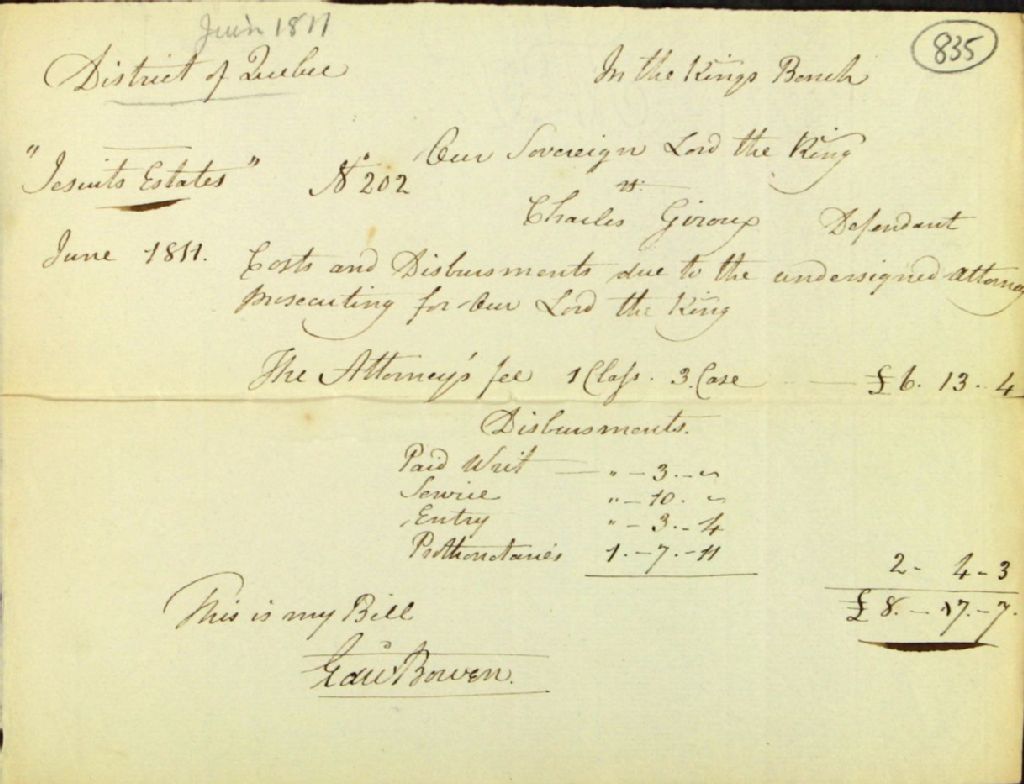 Juin 1811
835
District of Quebec In the Kings Bench
"Jesuits Estates" No 202 Our Sovereign Lord the King
vs.
Charles Giroux Defendant
June 1811. Costs and Disbursments due to the undersigned Attorney
prosecuting for Our Lord the King
The Attorney's fee 1 Class. 3. Case £6. 13.. 4
Disbursments.
Paid Writ — " – 3. – "
Service " – 10. "
Entry " – 3. – 4
Prothonotaries 1. – 7. – 11
2 – 4 – 3
£8. – 17. – 7.
This is my Bill
Edwd Bowen.